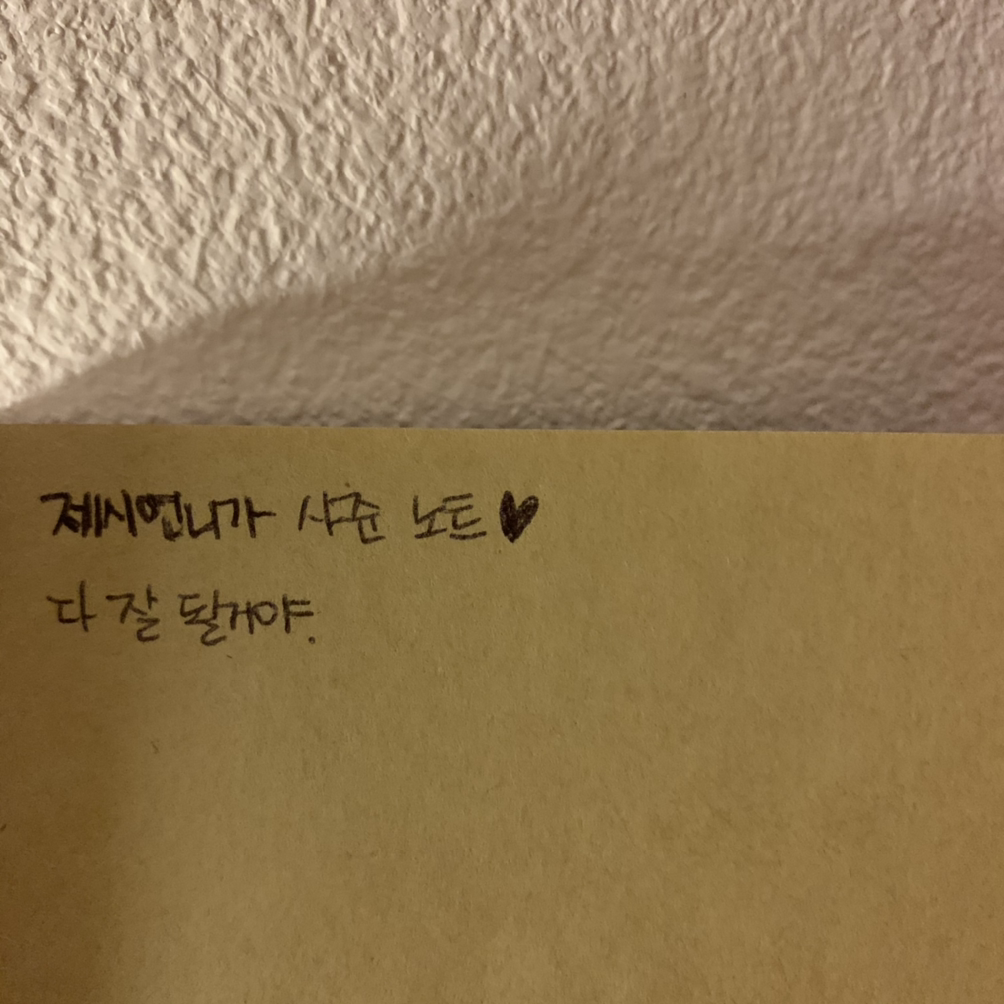 제시언니가 사준 노트♥
다 잘 될거야.